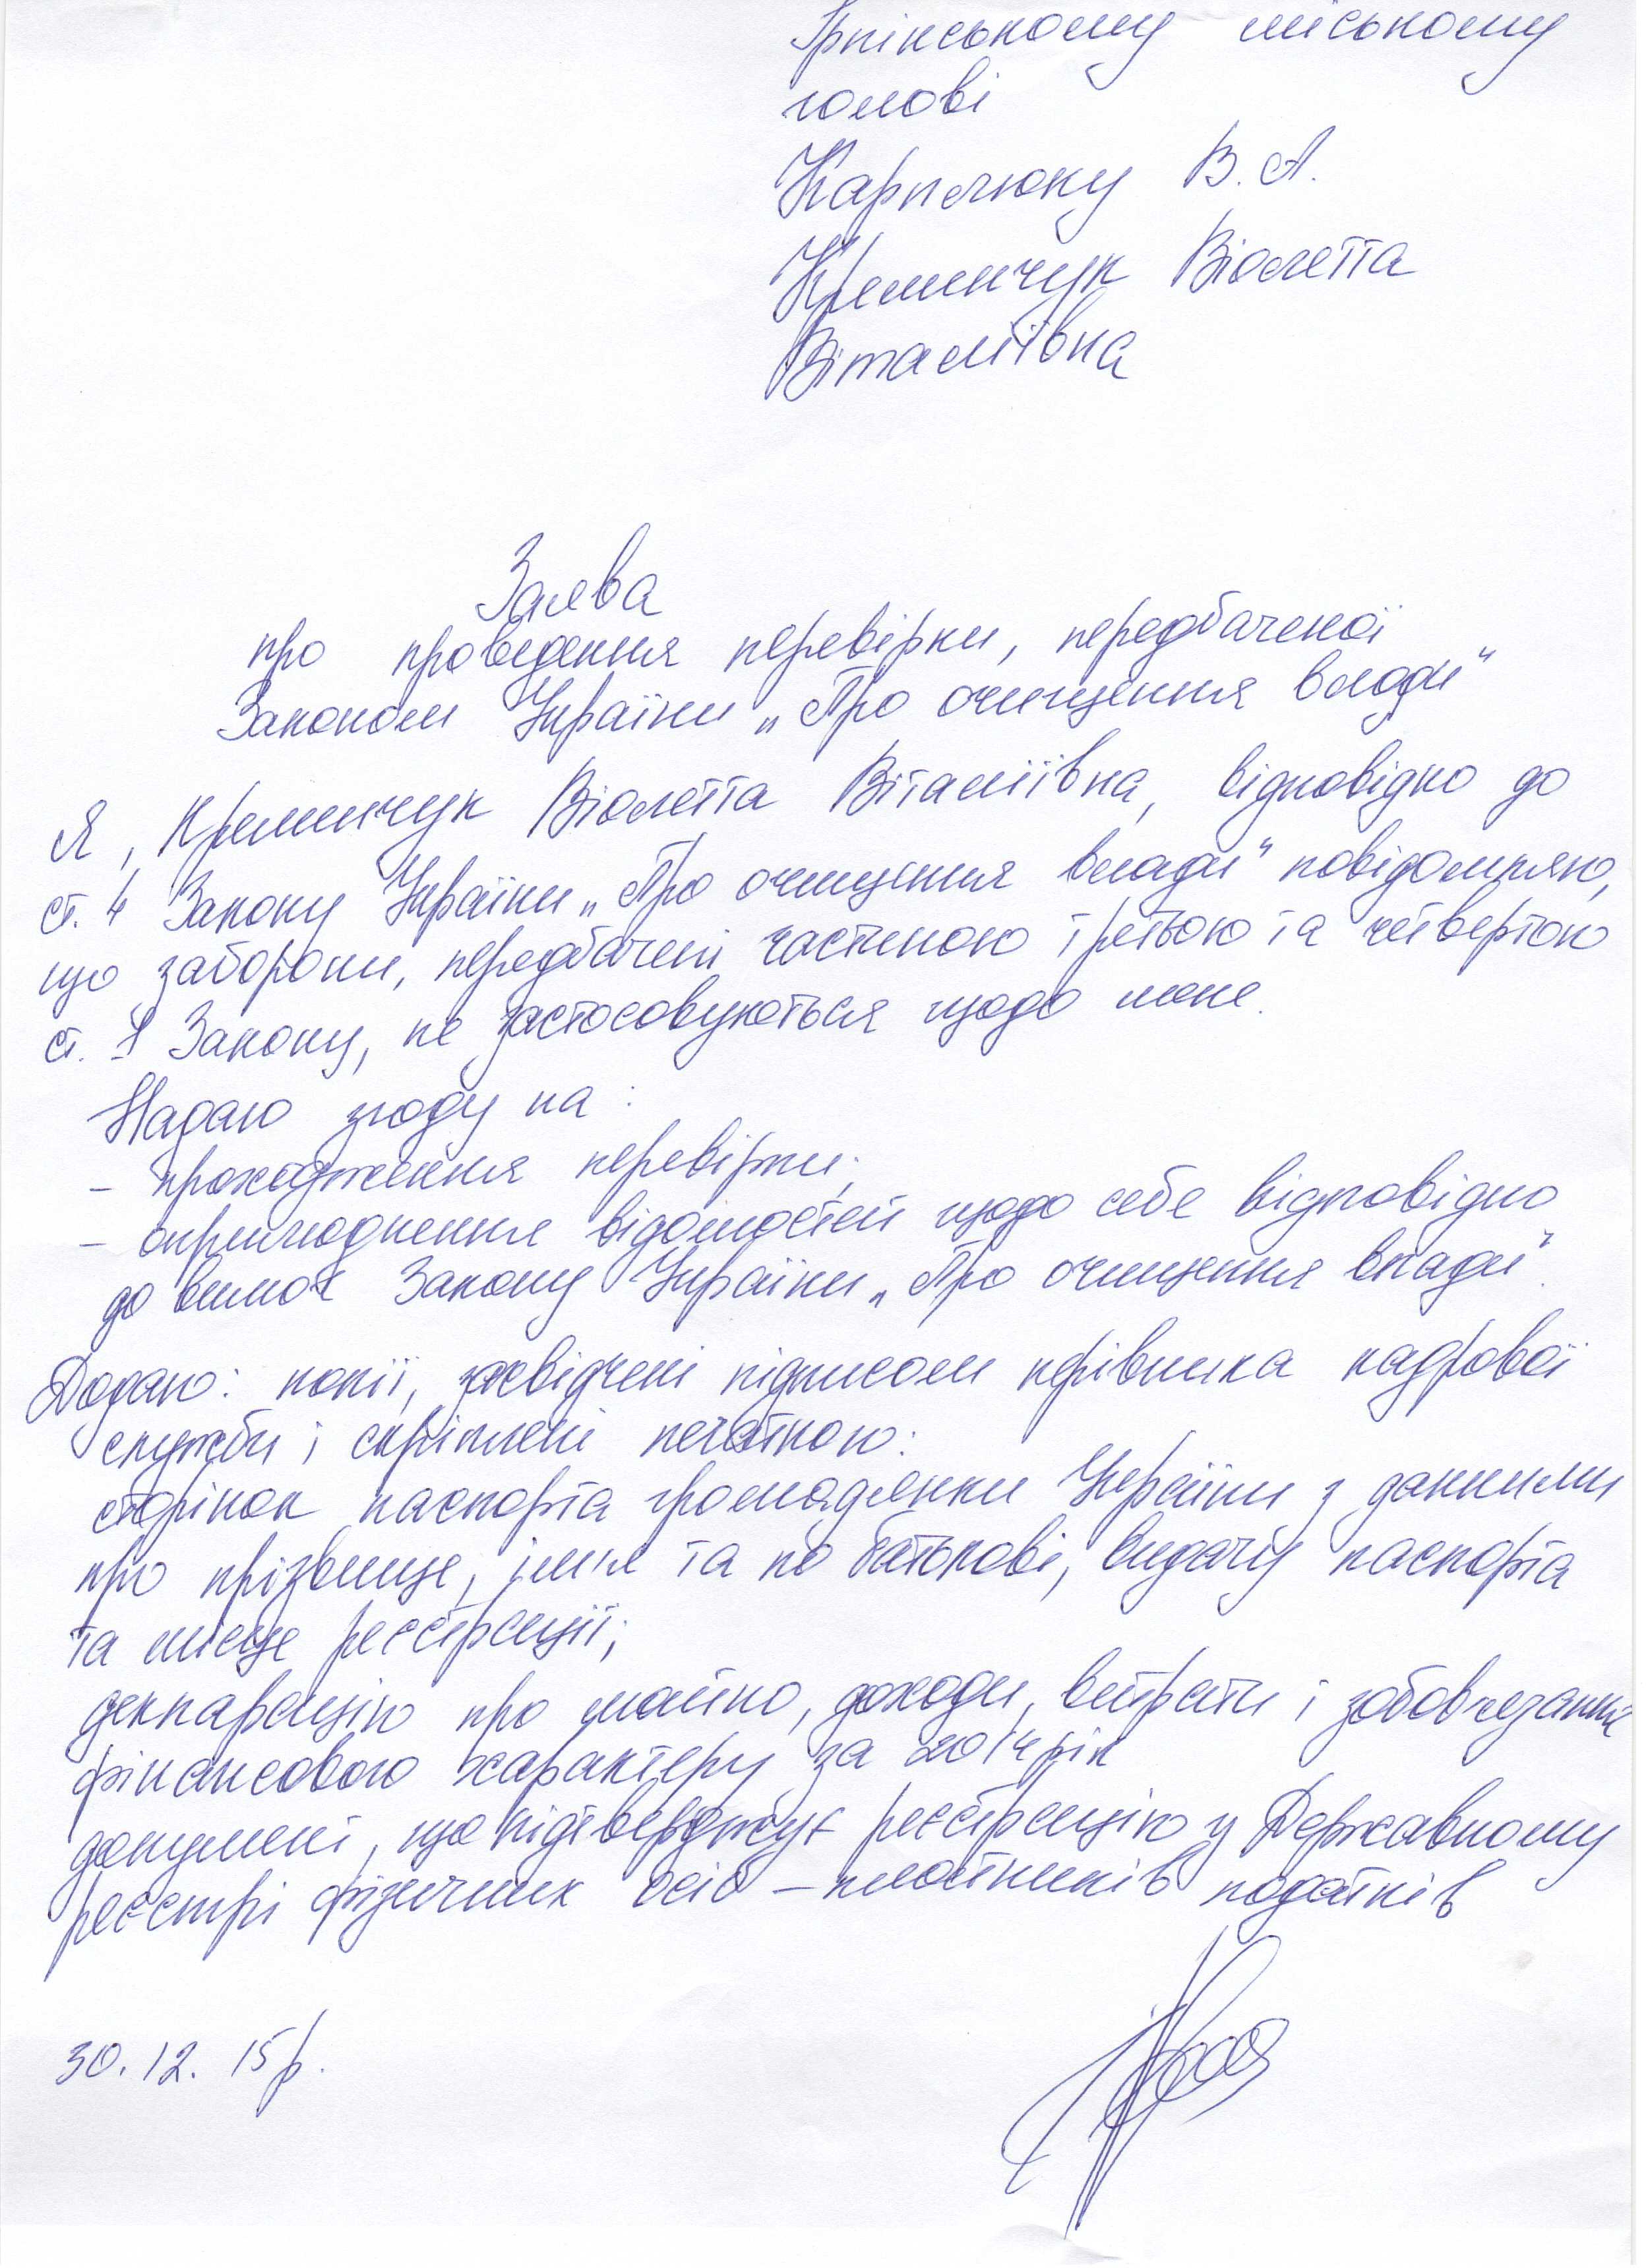 Ірпінському міському
голові
Карплюку В.А.
Кременчук Віолетта
Віталіївна
Заява
про проведення перевірки, передбаченої
Законом України „Про очищення влади"
Я, Кременчук Віолетта Віталіївна, відповідно до
ст. 4 Закону України „Про очищення влади" повідомляю,
що заборони, передбачені частиною третьою та четвертою
ст. 1 Закону, не застосовуються щодо мене.
Надаю згоду на:
- проходження перевірки;
- оприлюднення відомостей щодо себе відповідно
до вимог Закону України „Про очищення влади".
Додаю: копії, засвідчені підписом керівника кадрової
служби і скріплені печаткою:
сторінок паспорта громадянки України з данними
про прізвище, ім'я та по батькові, видачу паспорта
та місце реєстрації;
декларацію про майно, доходи, витрати і зобов'язання
фінансового характеру за 2014 рік
документ, що підтверджує реєстрацію у Державному
реєстрі фізичних осіб – платників податків
30.12.15р.